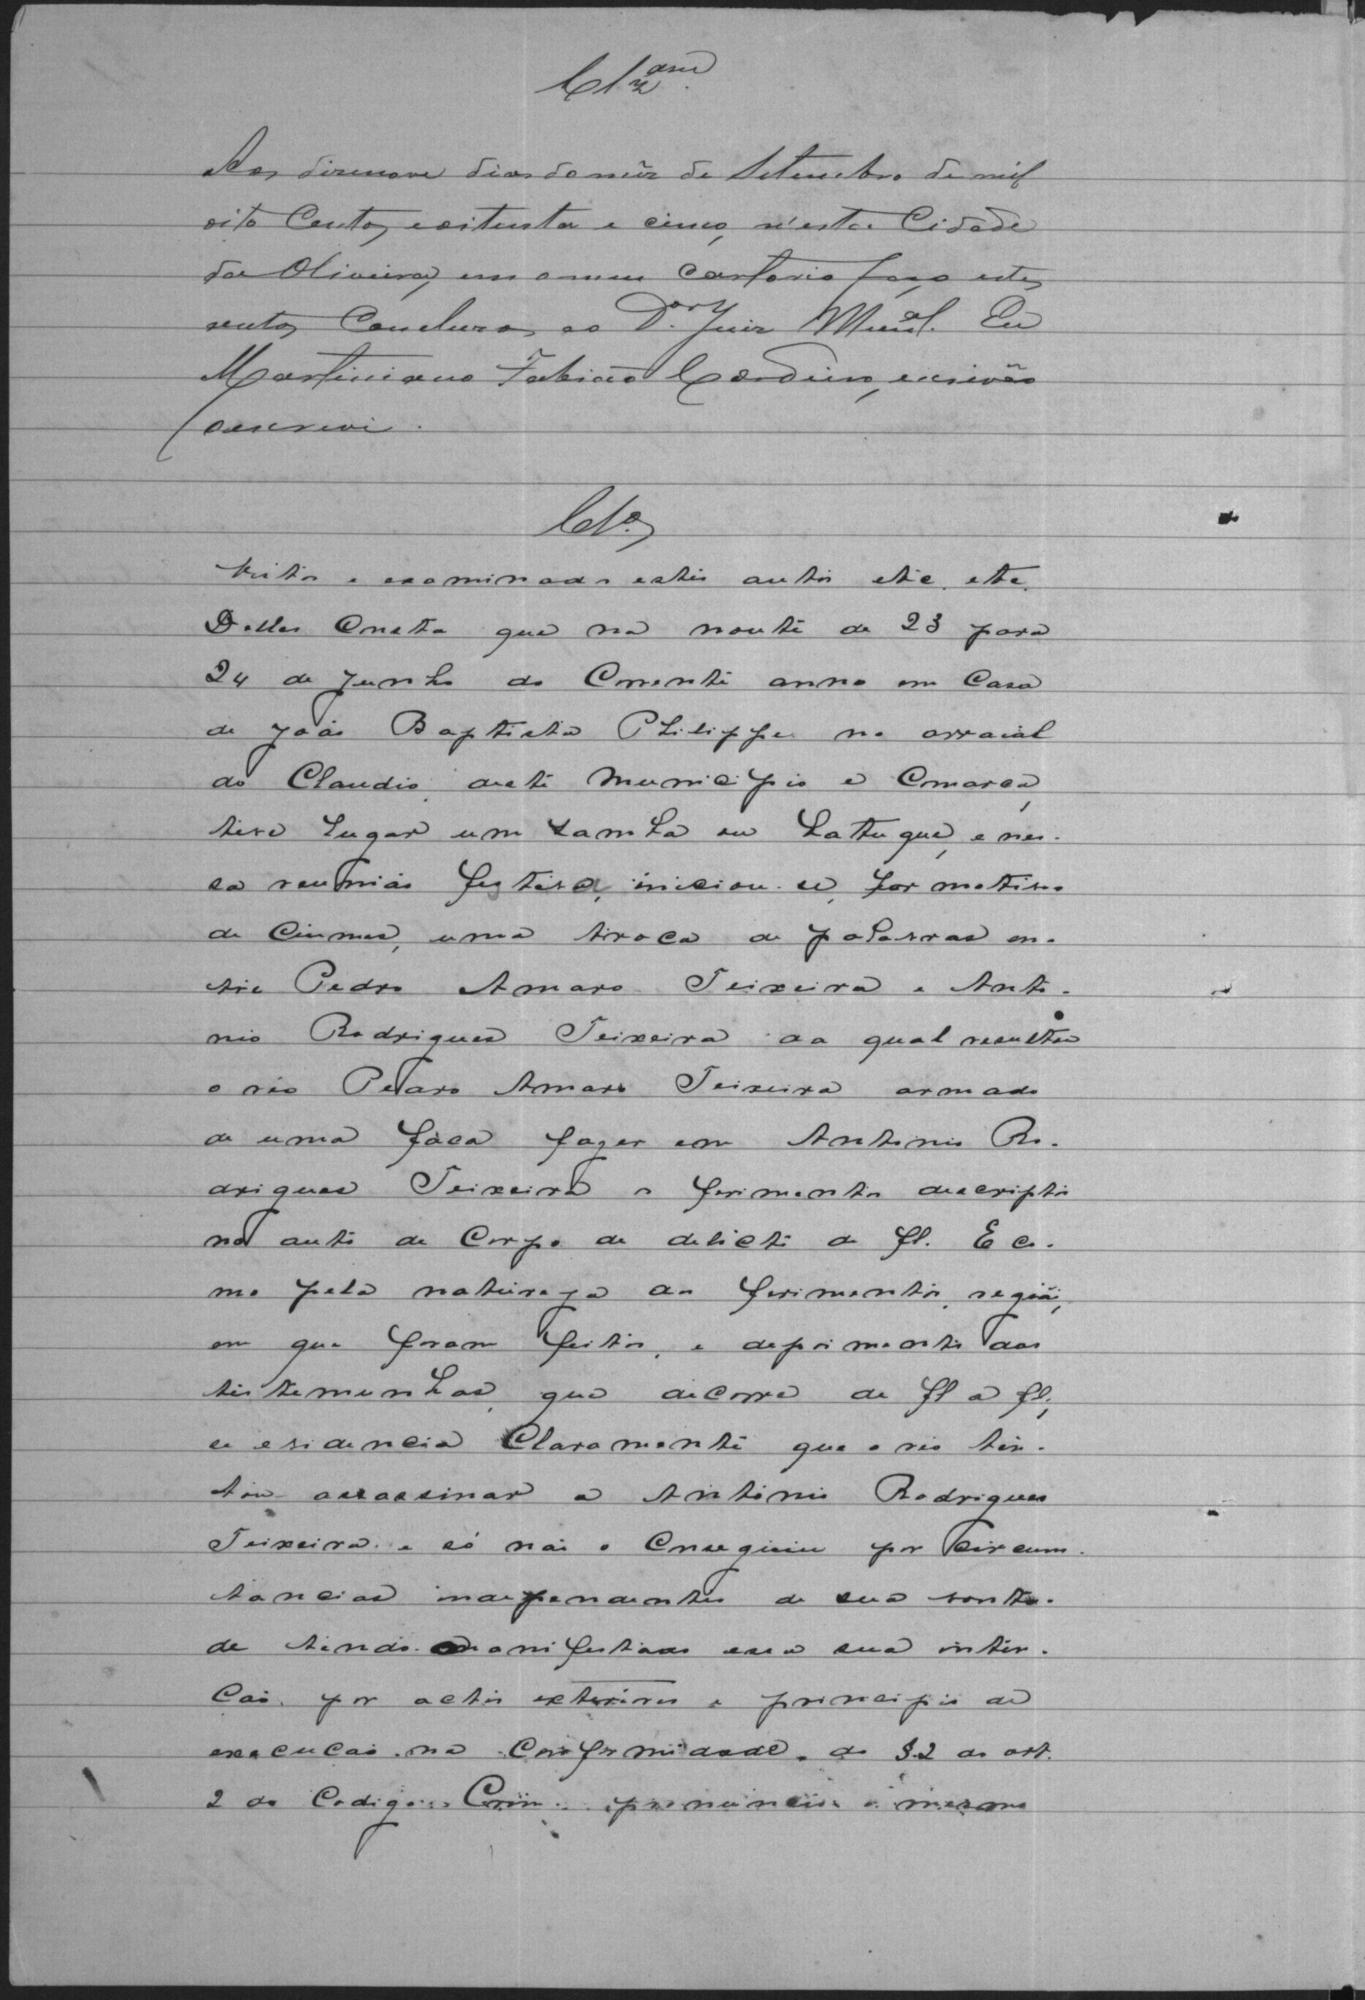 Clzam
Aos dizenove dias do mez de Setembro de mil
oito Centos e oitenta e cinco, n'esta Cidade
da Oliveira, em o meu Cartorio faço estes
autos Concluzos ao Dor. Juiz Munal. Eu
Martiniano Fabião Cordeiro, escrivão
o escrevi.
Clos
Vistos e examinados estes autos etc. etc.
Delles Consta que na noute de 23 para
24 de Junho do Corrente anno em Casa
de João Baptista Philippe no arraial
do Claudio, deste Municipio e Comarca,
teve lugar um samba ou batuque, e nes-
sa reunião festiva, iniciou-se, por motivo
de Ciumes, uma troca de palavras en-
tre Pedro Amaro Teixeira e Anto-
nio Rodrigues Teixeira da qual resultou
o réo Pedro Amaro Teixeira armado
de uma faca fazer em Antonio Ro-
drigues Teixeira os ferimentos descriptos
no auto de Corpo de delicto de fl. E co-
mo pela natureza dos ferimentos, região,
em que foram feitos, e depoimento das
testemunhas, que decorre de fl a fl,
se evidencia Claramente que o réo ten-
tou assassinar a Antonio Rodrigues
Teixeira e só não o Conseguiu por Circums-
tancias independentes de sua vonta-
de tendo manifestado essa sua inten-
ção por actos exteriores e principio de
execução na Conformidade do § 2 do art.
2 do Codigo Crim. pronuncio o mesmo